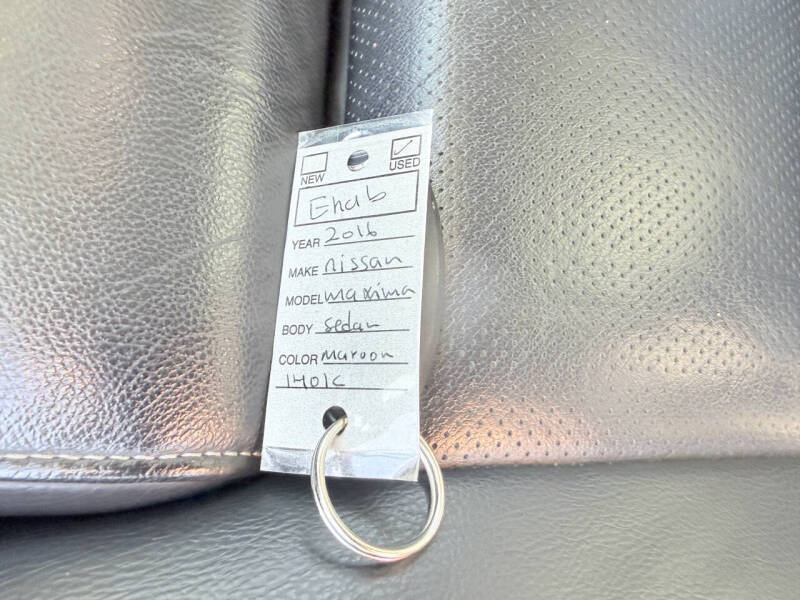 NEW USED
Ehab
YEAR 2016
MAKE nissan
MODEL maxima
BODY sedan
COLOR Maroon
1401C